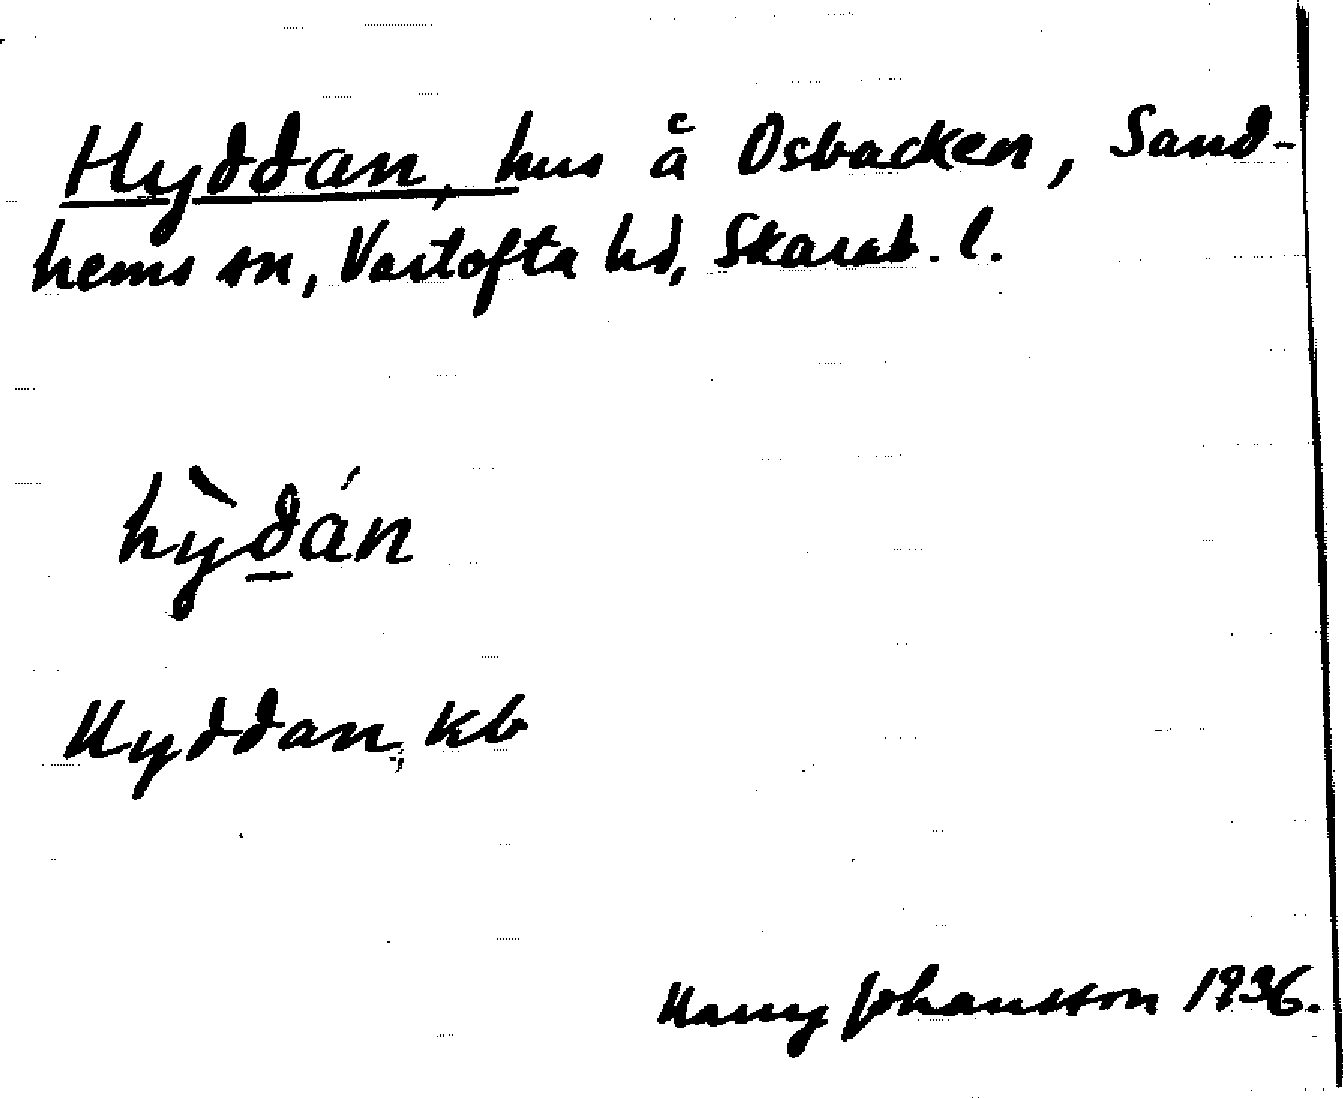 Hyddan, hus å Osbacken, Sand-
hems sn, Vartofta hd, Skarab. l.
hỳd̲án
Hyddan, kb
Harry Johansson 1936.